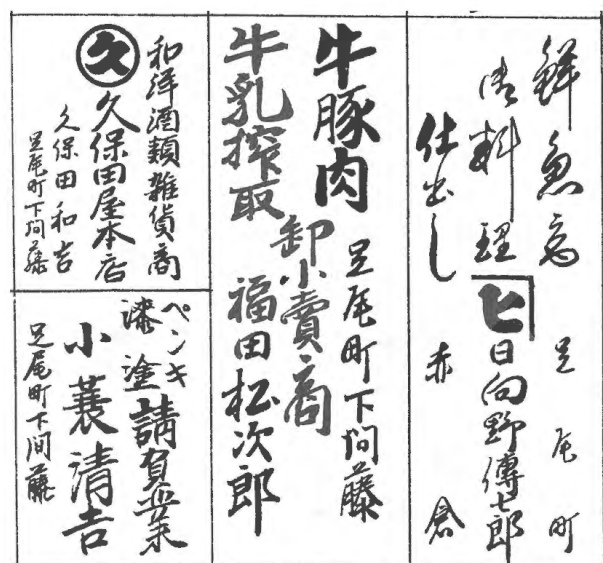 鮮魚商
御料理
仕出し
足尾町
ヒ 日向野傳七郎
赤倉
牛豚肉
牛乳搾取
卸小賣商
足尾町下間藤
福田松次郎
和洋酒類雑貨商
久 久保田屋本店
久保田和吉
足尾町下間藤
ペンキ
漆塗請負業
小蓑清吉
足尾町下間藤